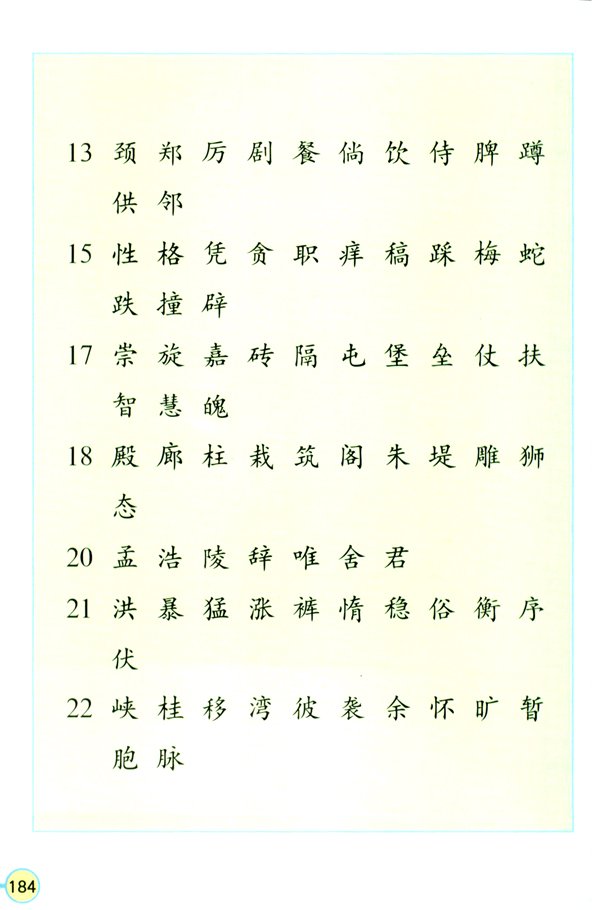 13 颈 郑 厉 剧 餐 倘 饮 侍 脾 蹲
供 邻
15 性 格 凭 贪 职 痒 稿 踩 梅 蛇
跌 撞 辟
17 崇 旋 嘉 砖 隔 屯 堡 垒 仗 扶
智 慧 魄
18 殿 廊 柱 栽 筑 阁 朱 堤 雕 狮
态
20 孟 浩 陵 辞 唯 舍 君
21 洪 暴 猛 涨 裤 惰 稳 俗 衡 序
伏
22 峡 桂 移 湾 彼 袭 余 怀 旷 暂
胞 脉
184